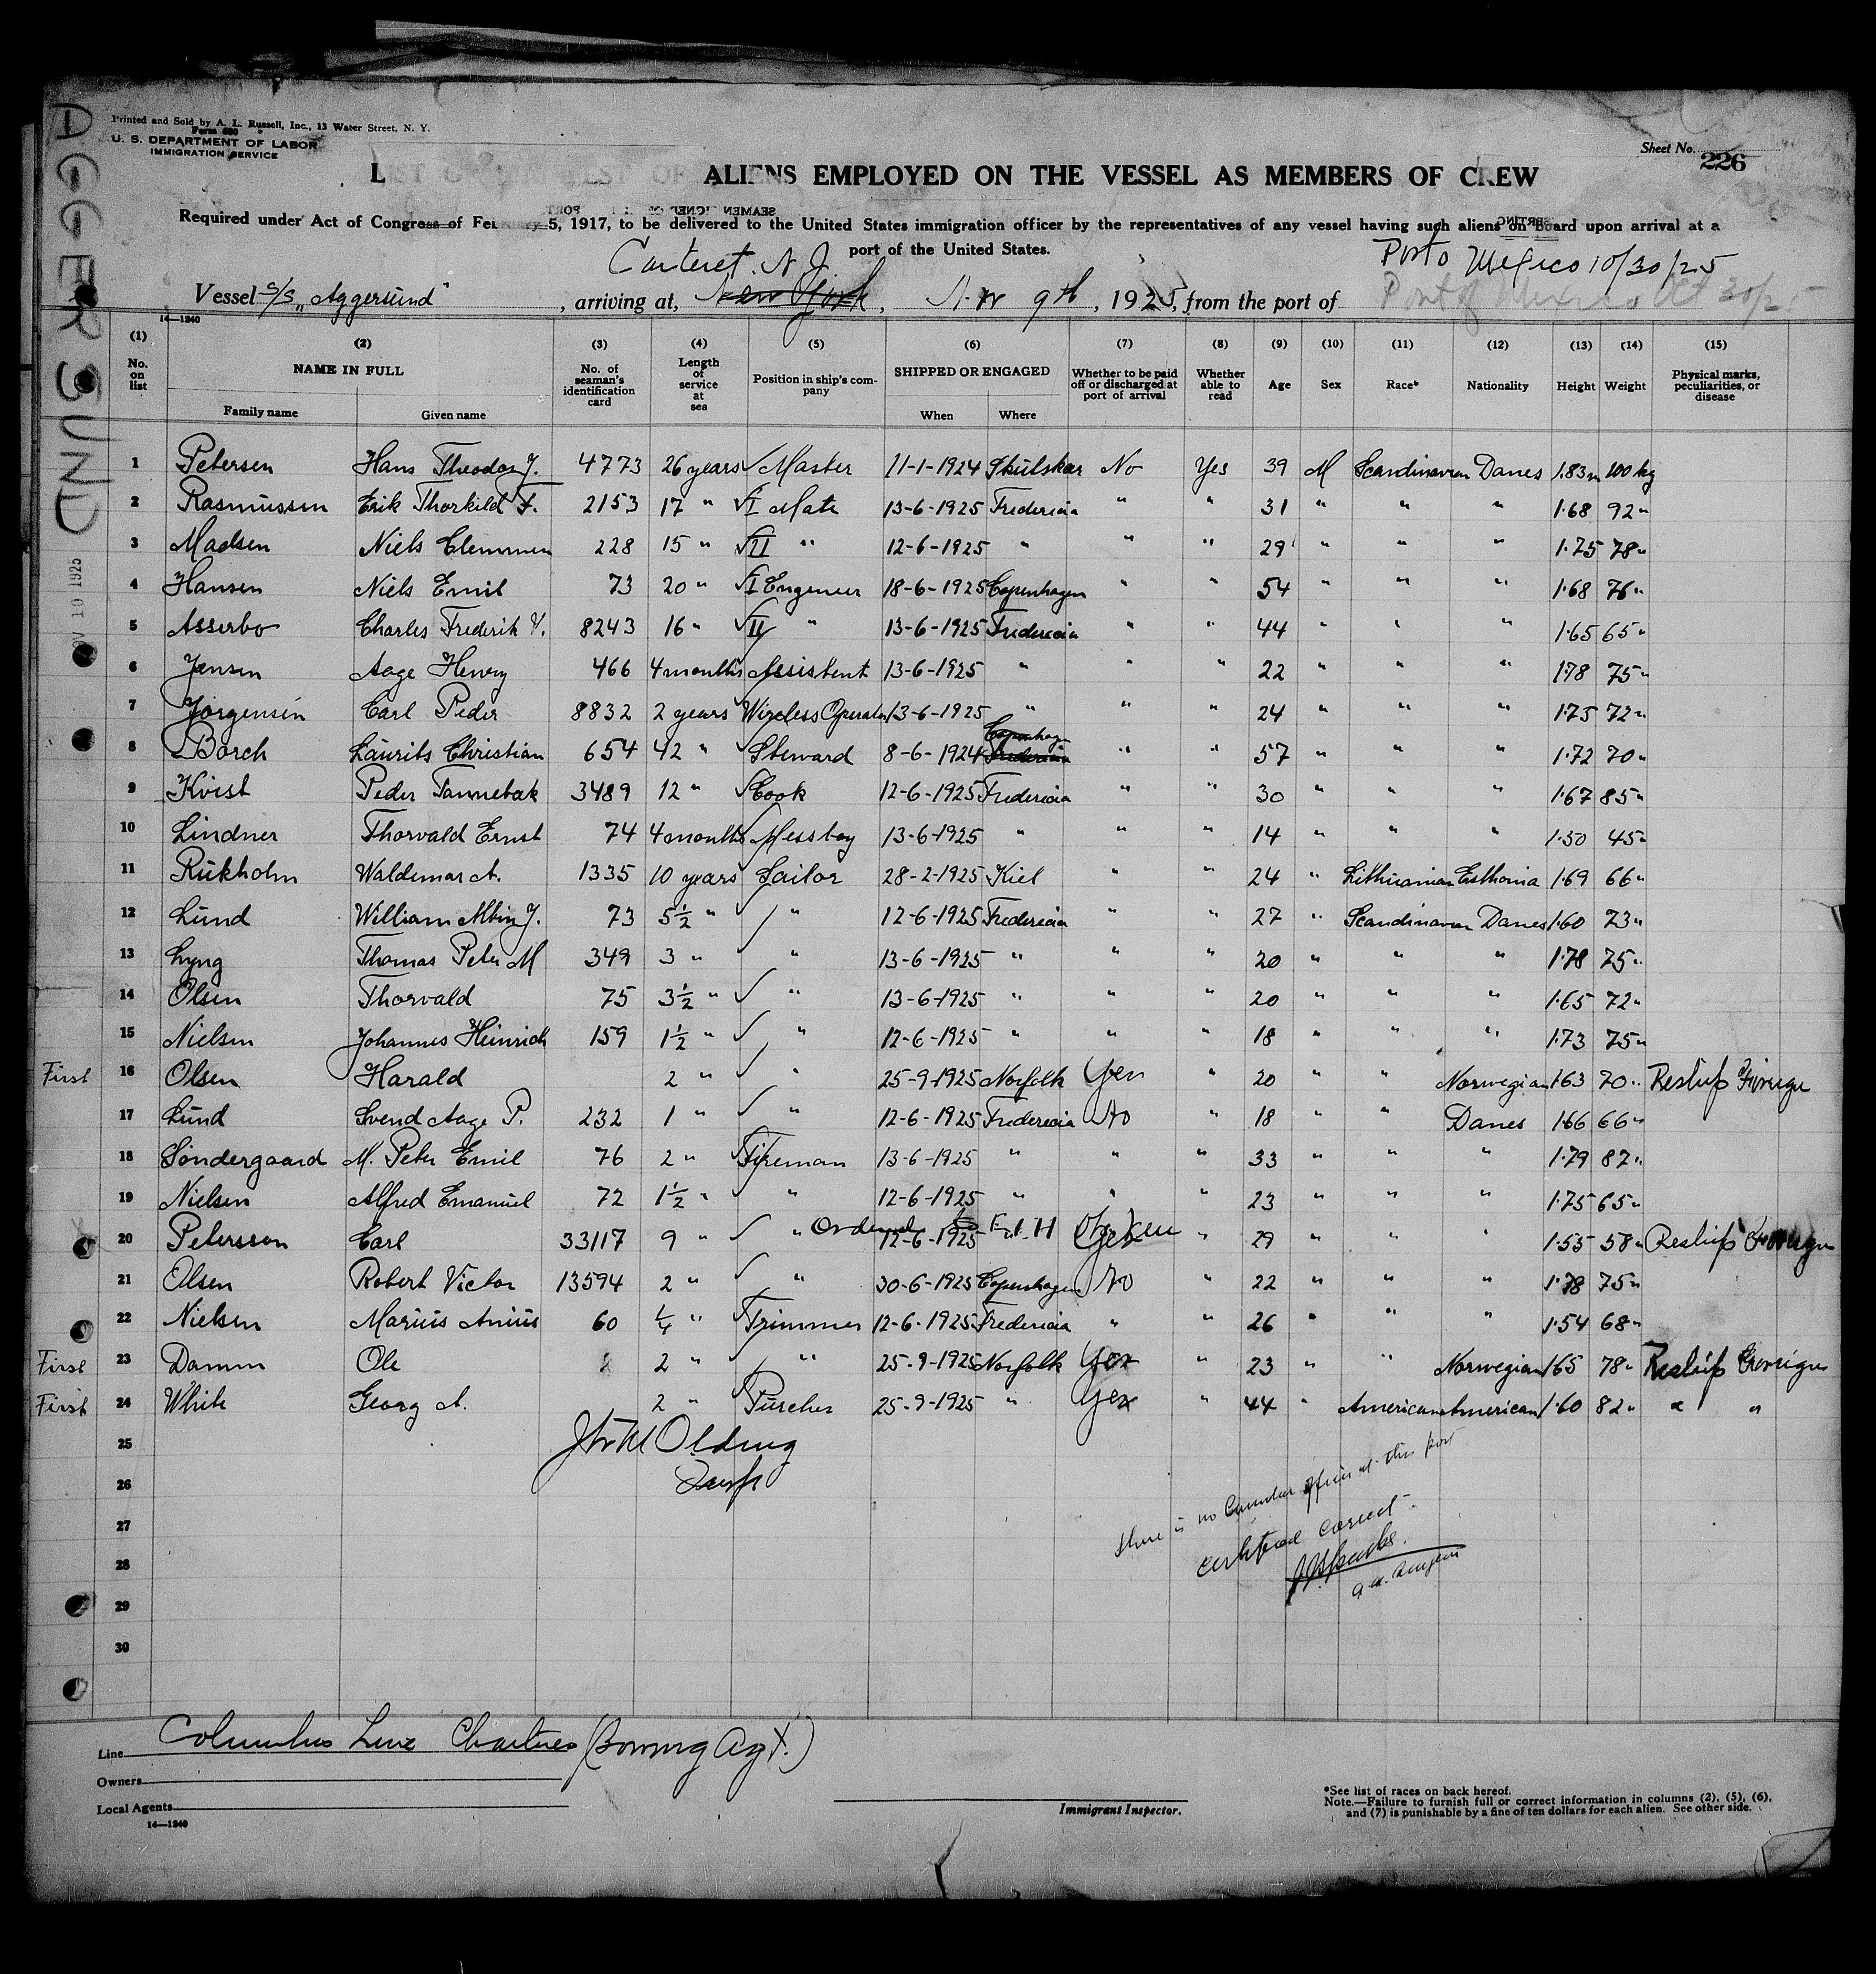 AGGERSUND
NOV 10 1925
Printed and Sold by A. L. Russell, Inc., 13 Water Street, N. Y.
Form 680
U. S. DEPARTMENT OF LABOR
IMMIGRATION SERVICE
Sheet No. 226
LIST OF ALIENS EMPLOYED ON THE VESSEL AS MEMBERS OF CREW
Required under Act of Congress of February 5, 1917, to be delivered to the United States immigration officer by the representatives of any vessel having such aliens on board upon arrival at a
port of the United States.
Carteret. N. J. Porto Mexico 10/30/25
Vessel S/S „Aggersund" , arriving at, New York , Nov 9th , 1925, from the port of Port of Mexico Oct 30/25
14—1240
(1) (2) (3) (4) (5) (6) (7) (8) (9) (10) (11) (12) (13) (14) (15)
No. on list NAME IN FULL Family name Given name No. of seaman's identification card Length of service at sea Position in ship's company SHIPPED OR ENGAGED When Where Whether to be paid off or discharged at port of arrival Whether able to read Age Sex Race* Nationality Height Weight Physical marks, peculiarities, or disease
1 Petersen Hans Theodor J. 4773 26 years Master 11-1-1924 Skutskar No Yes 39 M Scandinavian Danes 1.83m 100 kg
2 Rasmussen Erik Thorkild F. 2153 17 " I Mate 13-6-1925 Fredericia " " 31 " " " 1.68 92 "
3 Madsen Niels Clemmen 228 15 " II " 12-6-1925 " " " 29 " " " 1.75 78 "
4 Hansen Niels Emil 73 20 " I Engineer 18-6-1925 Copenhagen " " 54 " " " 1.68 76 "
5 Asserbo Charles Frederik V. 8243 16 " II " 13-6-1925 Fredericia " " 44 " " " 1.65 65 "
6 Jensen Aage Henry 466 4 months Assistent 13-6-1925 " " " 22 " " " 1.78 75 "
7 Jorgensen Carl Peder 8832 2 years Wireless Operator 13-6-1925 " " " 24 " " " 1.75 72 "
8 Borch Laurits Christian 654 42 " Steward 8-6-1924 Copenhagen Fredericia " " 57 " " " 1.72 70 "
9 Kvist Peder Tannebæk 3489 12 " Cook 12-6-1925 Fredericia " " 30 " " " 1.67 85 "
10 Lindner Thorvald Ernst 74 4 months Messboy 13-6-1925 " " " 14 " " " 1.50 45 "
11 Rukholm Waldemar A. 1335 10 years Sailor 28-2-1925 Kiel " " 24 " Lithuanian Esthonia 1.69 66 "
12 Lund William Albin J. 73 5½ " " 12-6-1925 Fredericia " " 27 " Scandinavian Danes 1.60 73 "
13 Lyng Thomas Peter M 349 3 " " 13-6-1925 " " " 20 " " " 1.78 75 "
14 Olsen Thorvald 75 3½ " " 13-6-1925 " " " 20 " " " 1.65 72 "
15 Nielsen Johannes Heinrich 159 1½ " " 12-6-1925 " " " 18 " " " 1.73 75 "
First 16 Olsen Harald 2 " " 25-9-1925 Norfolk Yes " 20 " " Norwegian 1.63 70 " Reship Foreign
17 Lund Svend Aage P. 232 1 " " 12-6-1925 Fredericia No " 18 " " Danes 1.66 66 "
18 Sondergaard M. Peter Emil 76 2 " Fireman 13-6-1925 " " " 33 " " " 1.79 87 "
19 Nielsen Alfred Emanuel 72 1½ " " 12-6-1925 " " " 23 " " " 1.75 65 "
20 Petersson Carl 33117 9 " " Ordered to 12-6-1925 " Yes " 29 " " " 1.55 58 " Reship Foreign
21 Olsen Robert Victor 13594 2 " " 30-6-1925 Copenhagen No " 22 " " " 1.78 75 "
22 Nielsen Marius Anius 60 ¼ " Trimmer 12-6-1925 Fredericia " " 26 " " " 1.54 68 "
First 23 Damm Ole 2 " " 25-9-1925 Norfolk Yes " 23 " " Norwegian 1.65 78 " Reship Foreign
First 24 White Georg A. 2 " 25-9-1925 " Yes " 44 " American American 1.60 82 " " "
25
26
27
28
29
30
there is no Consular officer at this port
Certified Correct
Line Columbus Line
Owners
Local Agents
14—1240
Immigrant Inspector.
*See list of races on back hereof.
Note.—Failure to furnish full or correct information in columns (2), (5), (6),
and (7) is punishable by a fine of ten dollars for each alien. See other side.